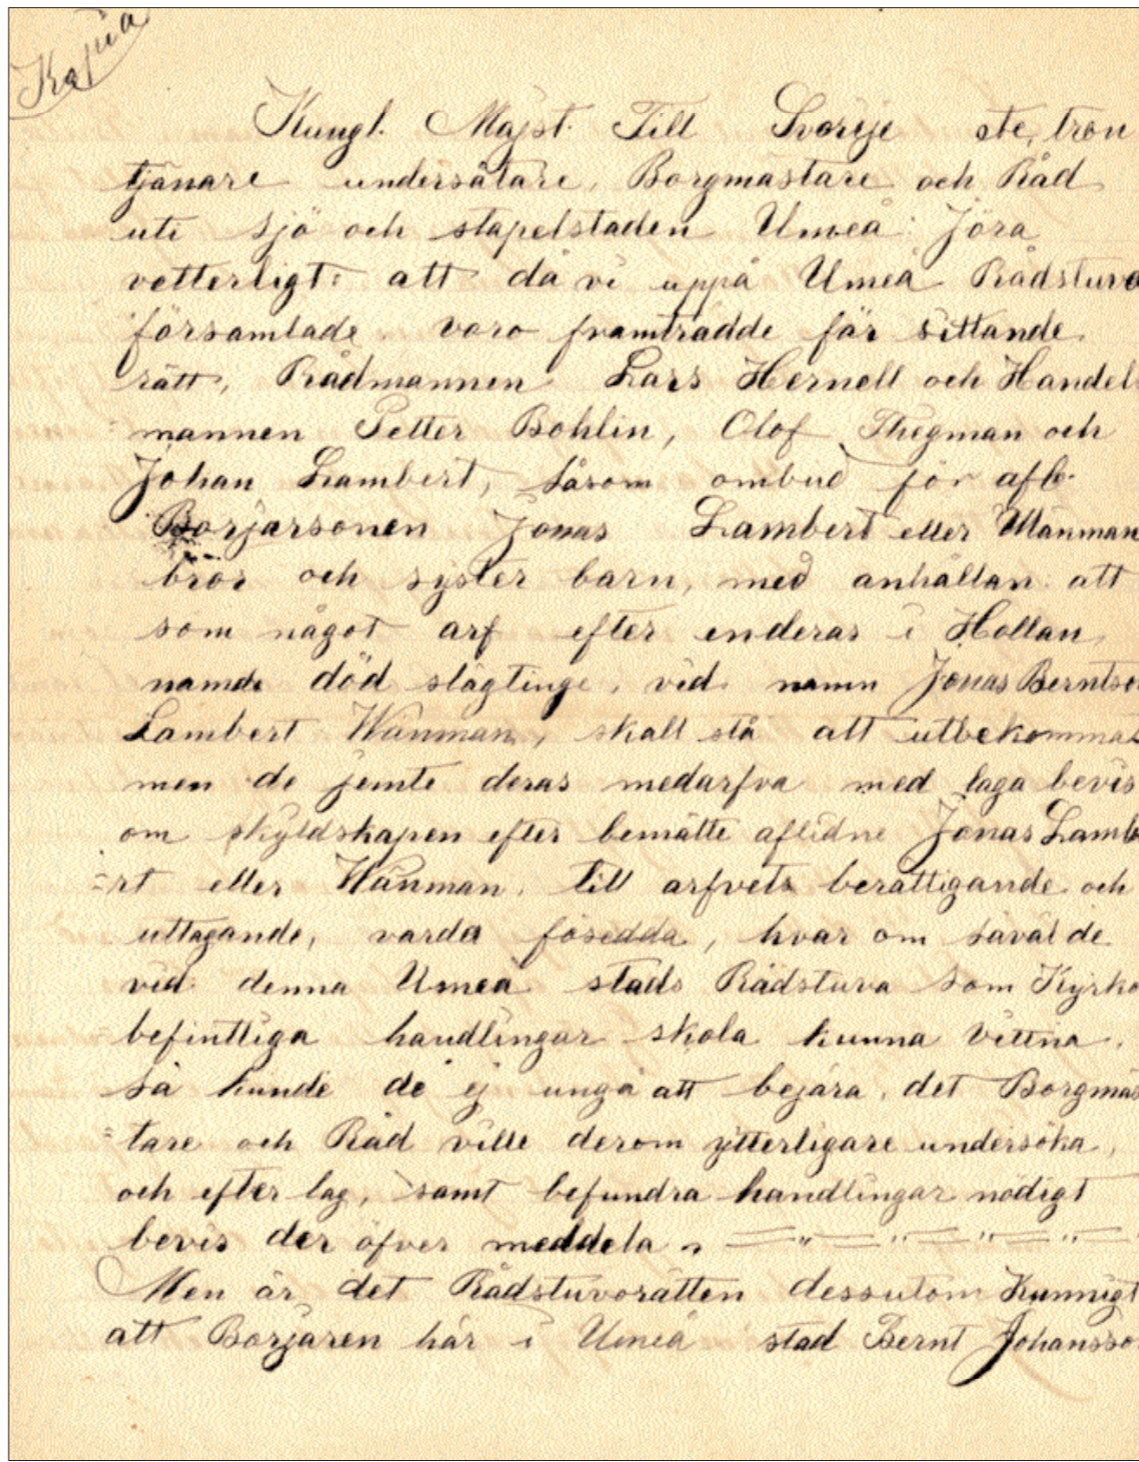 Kopia
Kungl. Majst. Till Sverje ete, tron
tjänare undersåtare, Borgmästare och Råd
uti sjö och stapelstaden Umeå: Jöra
vetterligt: att då vi uppå Umeå Rådstuvo
församlade voro framträdde för sittande
rätt, Rådmannen Lars Hernell och Handels
mannen Petter Bohlin, Olof Thegman och
Johan Lambert, såsom ombud för afle.
Borjarsonen Jonas Lambert eller Wänman
bror och syster barn, med anhållan att
som något arf efter enderas i Hollan
namde död slägtinge, vid namn Jonas Berntso
Lambert Wänman, skall stå att utbekommas
men de jemte deras medarfva med laga bevis
om skyldskapen efter bemälte aflidne Jonas Lamb
=rt eller Wänman till arfvets berättigande och
uttagande, varda fösedda, hvar om såväl de
vid denna Umeå stads Rådstuva som Kyrko
befintliga handlingar skola kunna vittna,
så kunde de ej ungå att bejära, det Borgmäs
=tare och Råd ville derom ytterligare undersöka,
och efter lag, samt befundra handlingar nödigt
bevis der öfver meddela
Men är det Rådstuvorätten dessutom Kunnigt
att Borjaren här i Umeå stad Bernt Johansso